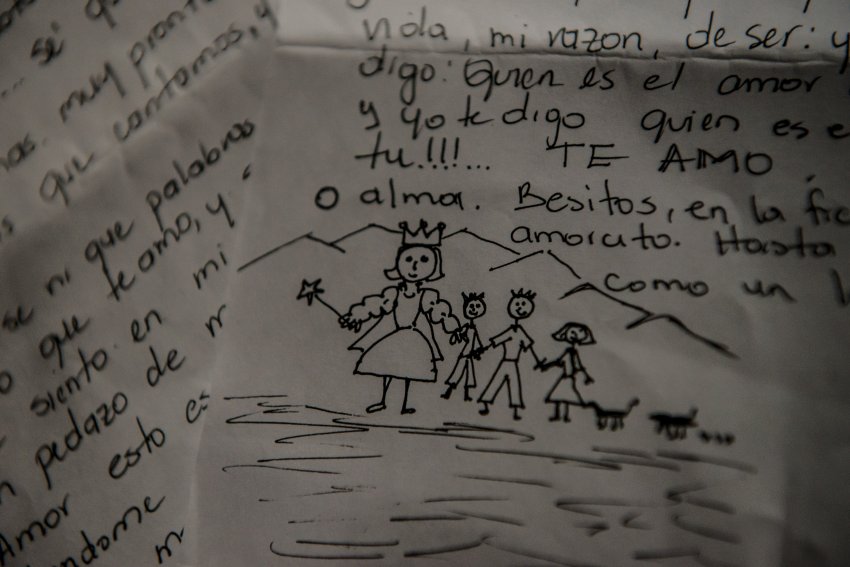 ... si
muy pronto
que cantamos, y
se ni que palabras
que te amo, y
siento en mi
pedazo de
Amor esto es
vida, mi razon, de ser: y
digo: Quien es el amor
y yo te digo quien es e
tu!!!... TE AMO
o alma. Besitos, en la
amorcito. Hasta
como un